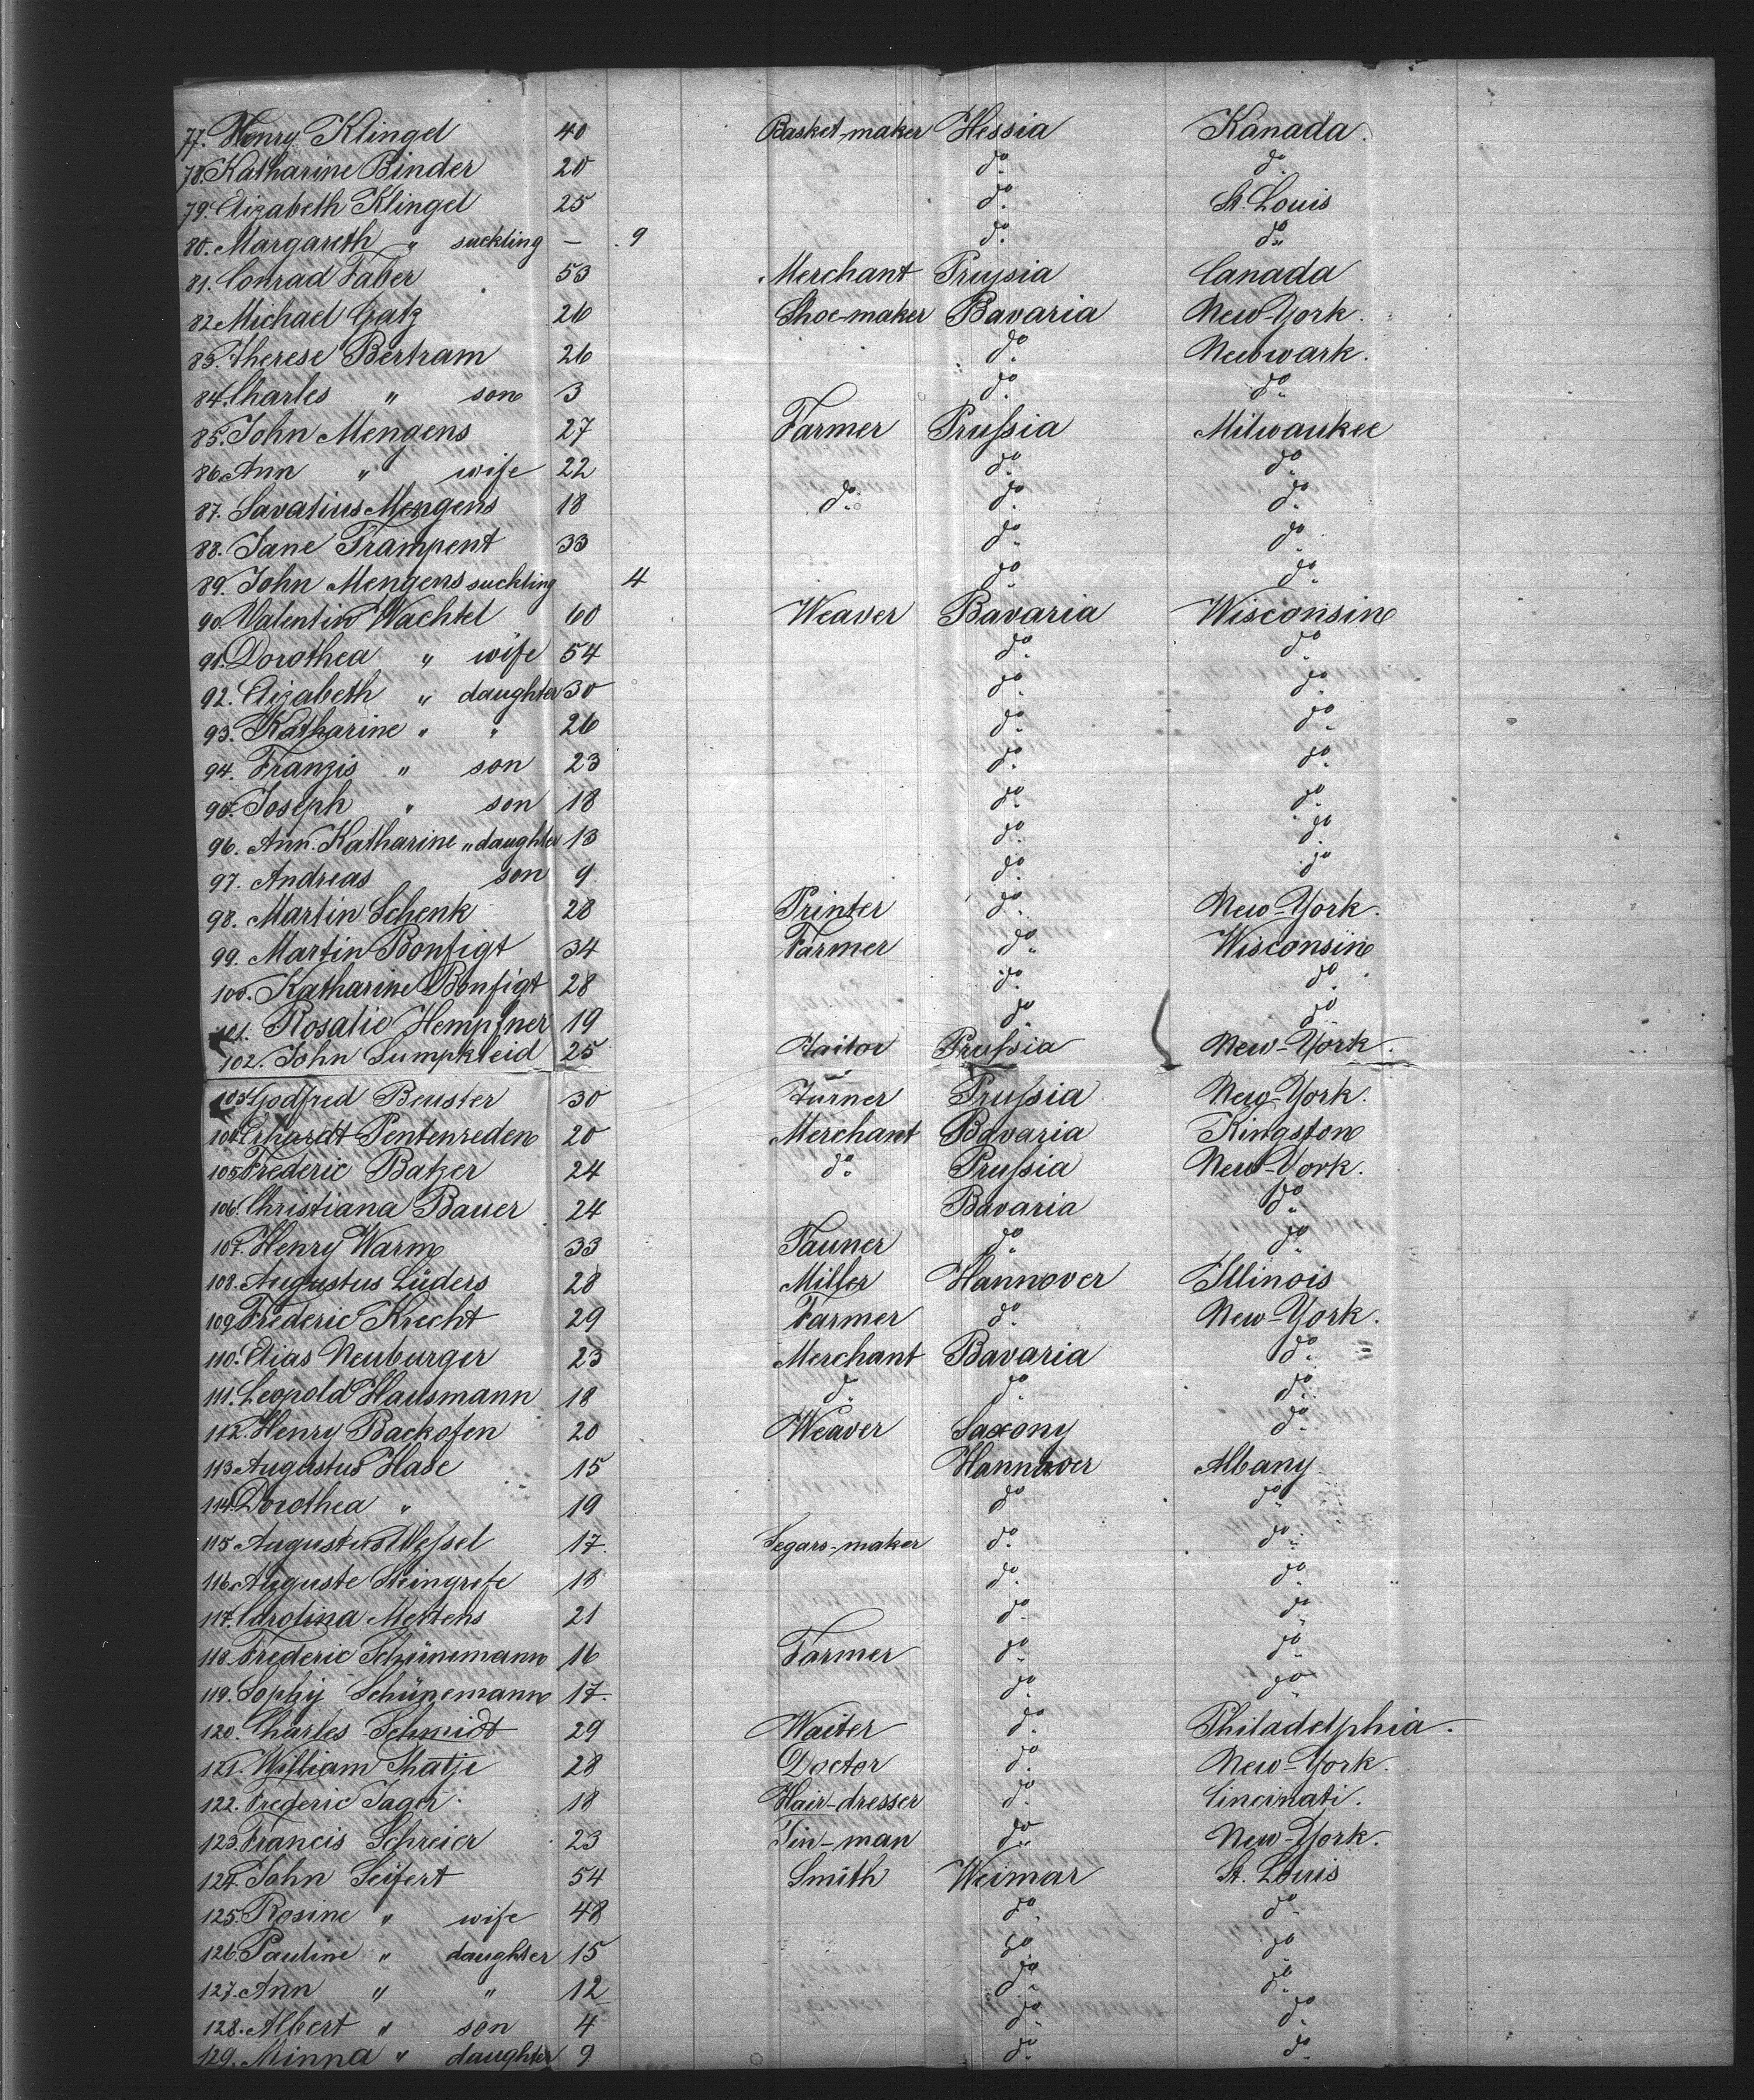 77. Henry Klingel 40 Basket-maker Hessia Kanada.
78. Katharine Binder 20 do. do.
79. Elizabeth Klingel 25 do. St. Louis
80. Margareth " suckling — 9 do. do.
81. Conrad Faber 53 Merchant Prussia Canada
82. Michael Gatz 26 Shoe-maker Bavaria New York.
83. Therese Bertram 26 do. Newwark.
84. Charles " son 3 do. do.
85. John Mengens 27 Farmer Prussia Milwaukee
86. Ann " wife 22 do. do.
87. Savatius Mengens 18 do. do. do.
88. Jane Trampent 33 do. do.
89. John Mengens suckling 4 do. do.
90. Valentin Wachtel 60 Weaver Bavaria Wisconsin
91. Dorothea " wife 54 do. do.
92. Elizabeth " daughter 30 do. do.
93. Katharine " " 26 do. do.
94. Franzis " son 23 do. do.
95. Joseph " son 18 do. do.
96. Ann. Katharine " daughter 13 do. do.
97. Andreas son 9 do. do
98. Martin Schenk 28 Printer do. New-York.
99. Martin Bonfigt 34 Farmer do. Wisconsin
100. Katharine Bonfigt 28 do. do.
101. Rosalie Hempfner 19 do. do.
102. John Lumpkleid 25 Tailor Prussia New-York.
103. Godfred Beuster 30 Turner Prussia New-York.
104. Erhardt Pentenreden 20 Merchant Bavaria Kingston
105. Frederic Batzer 24 do. Prussia New-York.
106. Christiana Bauer 24 Bavaria do.
107. Henry Warm 33 Tauner do. do.
108. Augustus Lüders 28 Miller Hannover Illinois
109. Frederic Knecht 29 Farmer do. New-York.
110. Elias Neuburger 23 Merchant Bavaria do.
111. Leopold Hausmann 18 do. do. do.
112. Henry Backofen 20 Weaver Saxony do.
113. Augustus Hase 15 Hannover Albany
114. Dorothea " 19 do do.
115. Augustus Wessel 17. Segars-maker do. do.
116. Auguste Steingrefe 18 do. do.
117. Carolina Mertens 21 do. do.
118. Frederic Schünemann 16 Farmer do. do.
119. Sophy Schünemann 17. do. do.
120. Charles Schmidt 29 Waiter do. Philadelphia.
121. William Thatje 28 Doctor do. New-York.
122. Frederic Jager 18 Hair-dresser do. Cincinati.
123. Francis Schreier 23 Tin-man do. New-York.
124. John Seifert 54 Smith Weimar St. Louis
125. Rosine " wife 48 do. do.
126. Pauline " daughter 15 do. do.
127. Ann " " 12 do. do.
128. Albert " son 4 do. do.
129. Minna " daughter 9 do. do.